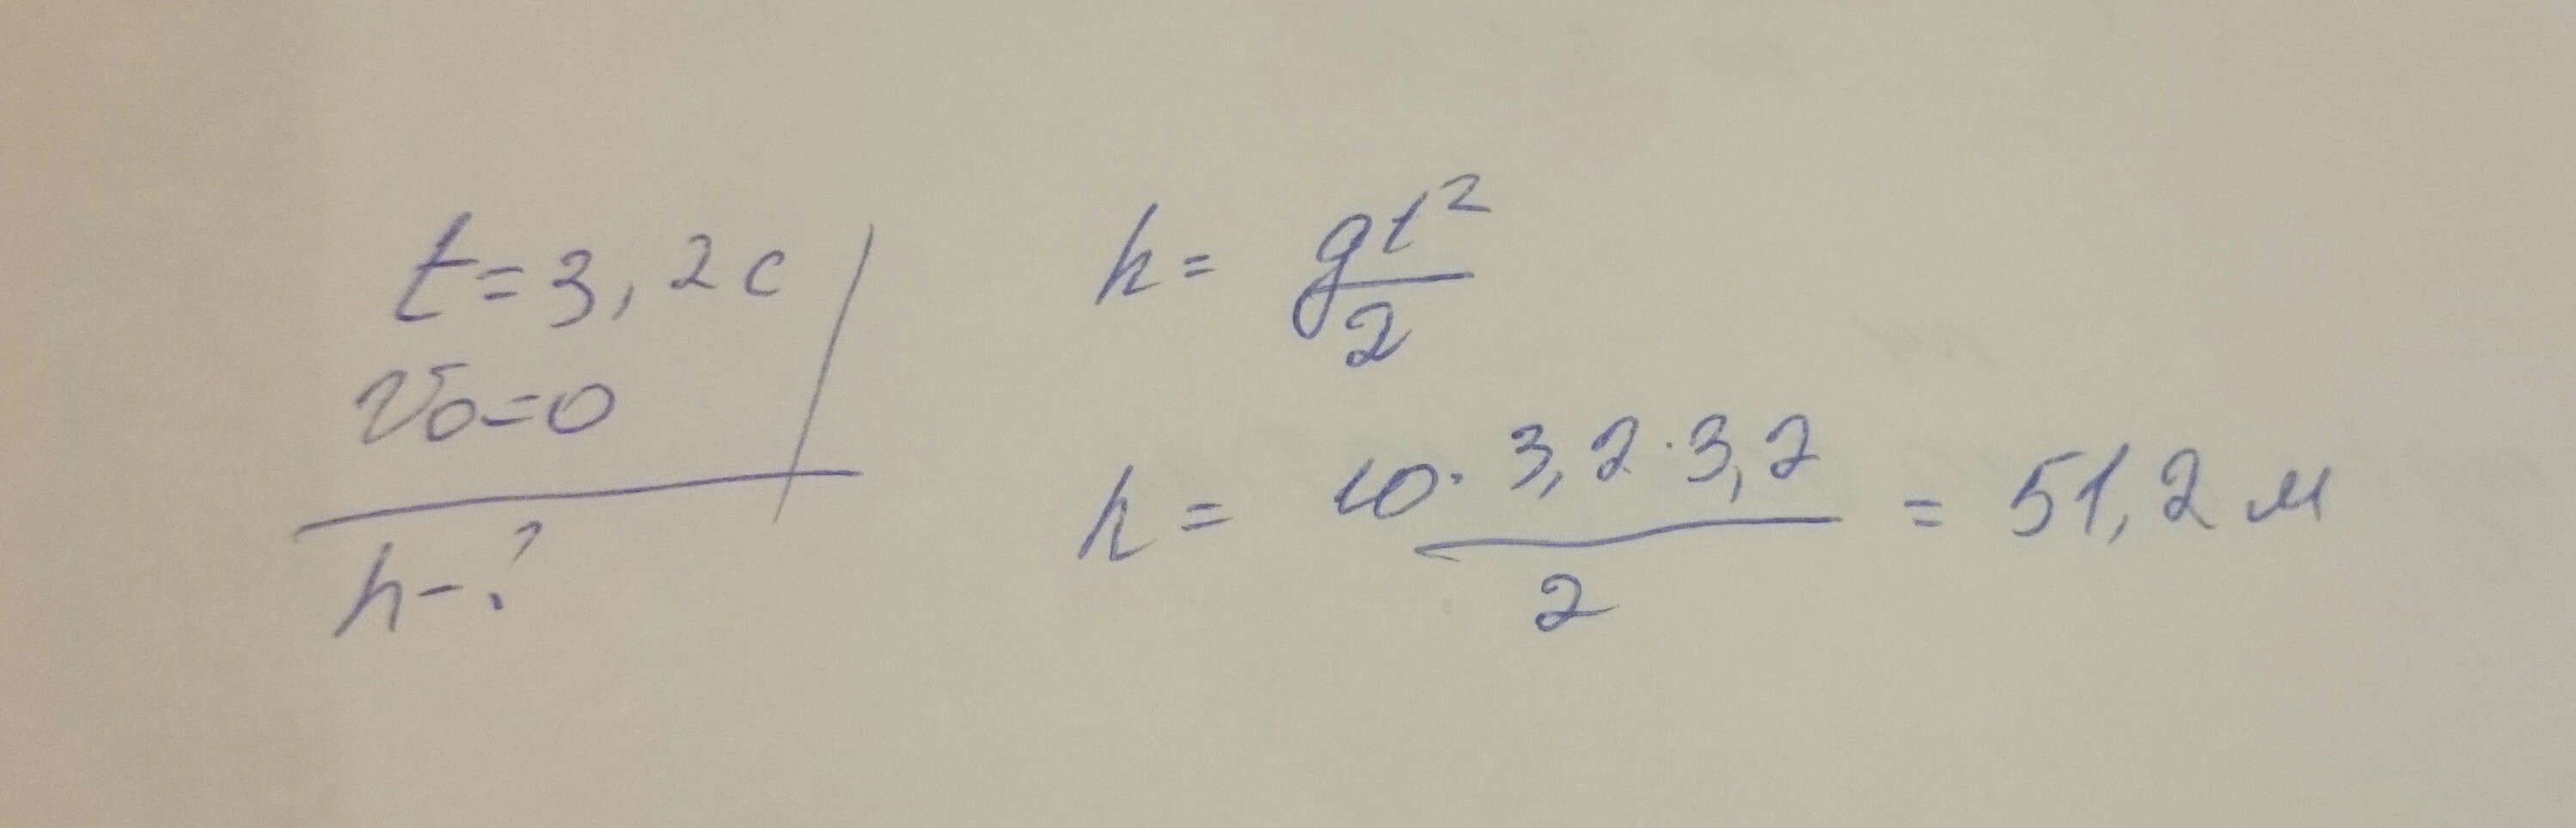 t=3,2c
v0=0
h-?
h= gt²/2
h= 10·3,2·3,2/2 = 51,2 м